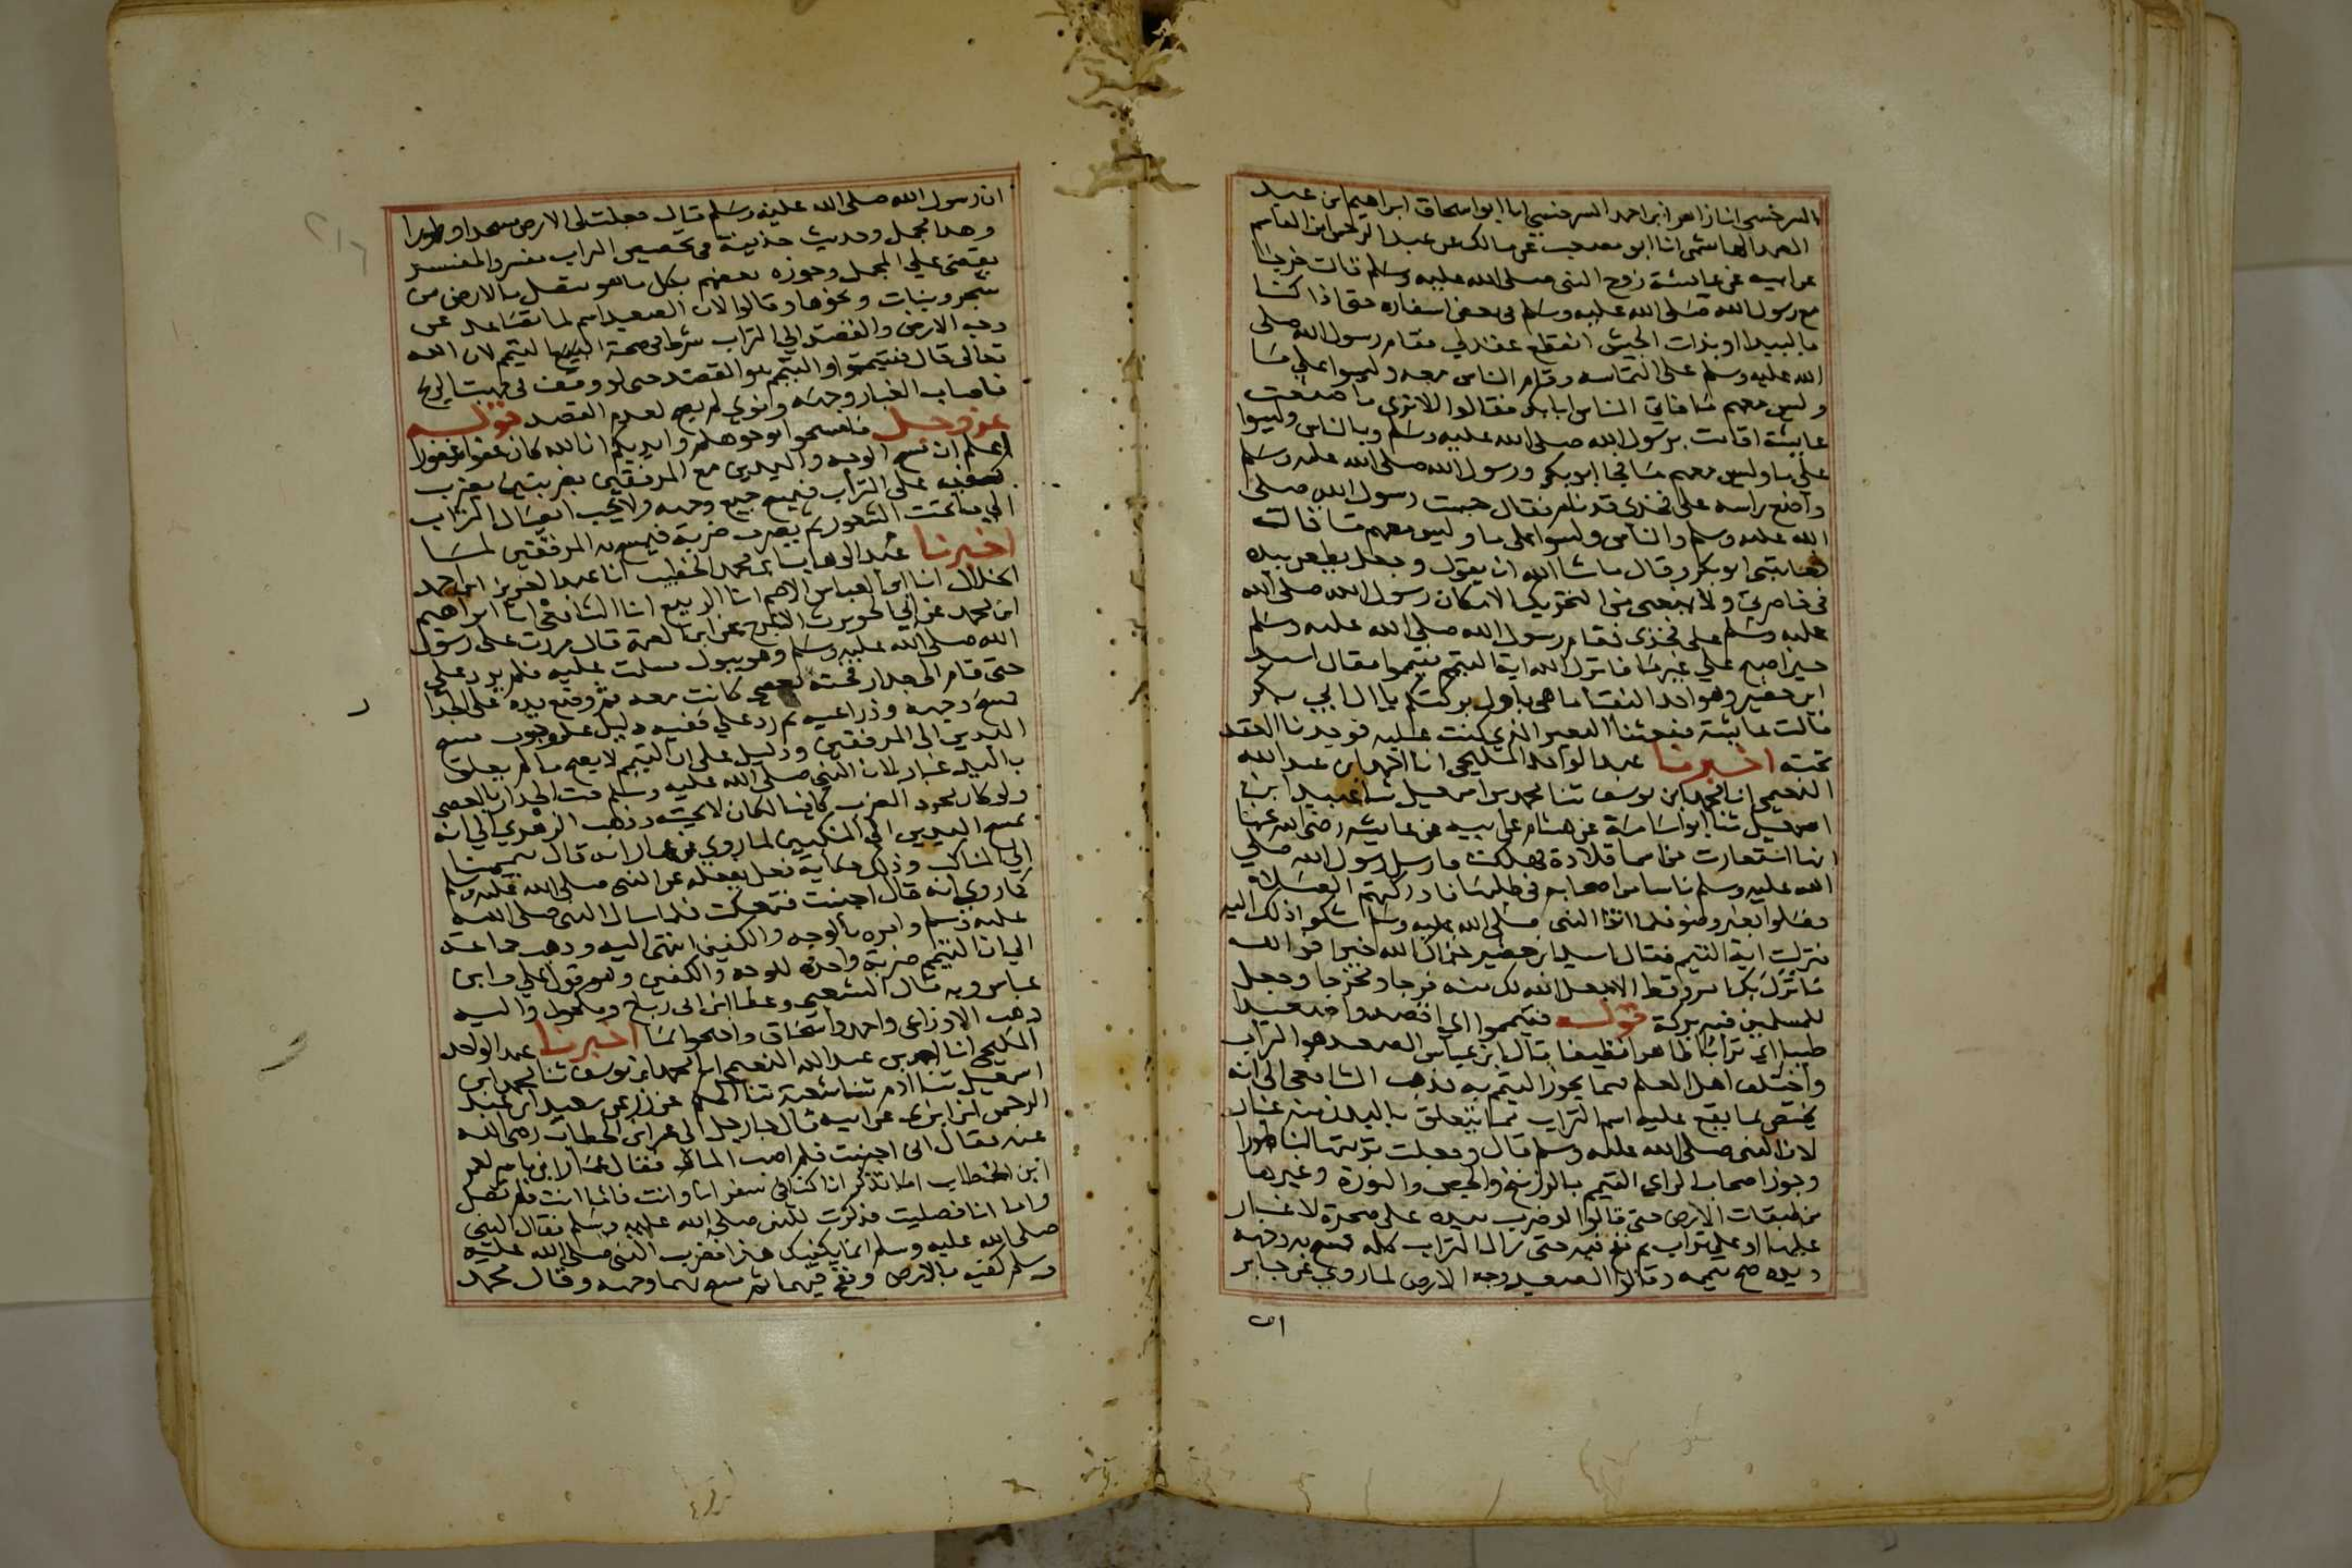 السرخسي انا زاهر ابن احمد السرخسي انا ابو اسحاق ابراهيم ابن عبد
الصمد الهاشمي انا ابو مصعب عن مالك عن عبد الرحمن ابن القاسم
عن ابيه عن عايشة زوج النبي صلى الله عليه وسلم قالت خرجنا
مع رسول الله صلى الله عليه وسلم في بعض اسفاره حتى اذا كنا
بالبيدا او بذات الجيش انقطع عقد لي فقام رسول الله صلى
الله عليه وسلم على التماسه وقام الناس معه وليسوا على ما
وليس معهم ما فاتى الناس ابا بكر فقالوا الا ترى ما صنعت
عايشة اقامت برسول الله صلى الله عليه وسلم وبالناس وليسوا
على ما وليس معهم ما فجا ابو بكر ورسول الله صلى الله عليه وسلم
واضع راسه على فخذي قد نام فقال حبست رسول الله صلى
الله عليه وسلم والناس وليسوا على ما وليس معهم ما قالت
فعاتبني ابو بكر وقال ما شا الله ان يقول وجعل يطعن بيده
في خاصرتي ولا يمنعني من التحريك الا مكان رسول الله صلى الله
عليه وسلم على فخذي فقام رسول الله صلى الله عليه وسلم
حين اصبح على غير ما فانزل الله اية التيمم فتيمموا فقال اسيد
ابن حضير وهو احد النقبا ما هي باول بركتكم يا ال ابي بكر
قالت عايشة فبعثنا البعير الذي كنت عليه فوجدنا العقد
تحته اخبرنا عبد الواحد المليحي انا احمد ابن عبد الله
النعيمي انا محمد ابن يوسف ثنا محمد بن اسمعيل ثنا عبيد ابن
اسمعيل ثنا ابو اسامة عن هشام عن ابيه عن عايشه رضي الله عنها
انها استعارت من اسما قلادة فهلكت فارسل رسول الله صلى
الله عليه وسلم ناسا من اصحابه في طلبها فادركتهم الصلاة
فصلوا بغير وضو فلما اتوا النبي صلى الله عليه وسلم شكوا ذلك اليه
فنزلت اية التيمم فقال اسيد ابن حضير جزاك الله خيرا فو الله
ما نزل بك امر قط الا جعل الله لك منه فرجا ومخرجا وجعل
للمسلمين فيه بركة قوله فتيمموا اي اقصدوا صعيدا
طيبا اي ترابا طاهرا نظيفا قال ابن عباس الصعيد هو التراب
واختلف اهل العلم فيما يجوز التيمم به فذهب الشافعي الى انه
يختص بما يقع عليه اسم التراب مما يتعلق باليد منه غبار
لان النبي صلى الله عليه وسلم قال وجعلت تربتها لنا طهورا
وجوز اصحاب الراي التيمم بالزرنيخ والجص والنورة وغيرها
من طبقات الارض حتى قالوا لو ضرب بيده على صخرة لا غبار
عليها او على تراب ثم نفخ فيه حتى زال التراب كله فمسح به وجهه
ويديه صح تيممه وقالوا الصعيد وجه الارض لما روي عن جابر
ان رسول الله صلى الله عليه وسلم قال جعلت لي الارض مسجدا وطهورا
وهذا مجمل وحديث حذيفة في تخصيص التراب مفسر والمفسر
يقضي على المجمل وجوزه بعضهم بكل ما هو متصل بالارض من
شجر ونبات ونحوها وقالوا لان الصعيد اسم لما تصاعد على
وجه الارض والقصد الى التراب شرط في صحة التيمم لان الله
تعالى قال فتيمموا والتيمم هو القصد حتى لو وقف في مهب الريح
فاصاب الغبار وجهه ونوى لم يصح لعدم القصد قوله
عز وجل فامسحوا بوجوهكم وايديكم ان الله كان عفوا غفورا
اعلم ان مسح الوجه واليدين مع المرفقين بضربتين يضرب
كفيه على التراب فيمسح جميع وجهه ولا يجب ايصال التراب
الى ما تحت الشعور ثم يضرب ضربة فيمسح يديه الى المرفقين لما
اخبرنا عبد الوهاب ابن محمد الخطيب انا عبد العزيز ابن احمد
الخلال انا ابو العباس الاصم انا الربيع انا الشافعي انا ابراهيم
ابن محمد عن ابي الحويرث الاعرج عن ابن الصمة قال مررت على رسول
الله صلى الله عليه وسلم وهو يبول فسلمت عليه فلم يرد علي
حتى قام الى جدار فحته بعصى كانت معه ثم وضع يده على الجدار
فمسح وجهه وذراعيه ثم رد علي ففيه دليل على وجوب مسح
اليدين الى المرفقين ودليل على ان التيمم لا يصح ما لم يعلق
باليد غبار لان النبي صلى الله عليه وسلم حت الجدار بالعصى
ولو كان مجرد الضرب كافيا لكان لا يحته وذهب الزهري الى انه
يمسح اليدين الى المنكبين لما روي عن عمار انه قال تيممنا
الى المناكب وذلك حكاية فعل لم ينقله عن النبي صلى الله عليه وسلم
كما روي انه قال اجنبت فتمعكت فلما سال النبي صلى الله
عليه وسلم وامره بالوجه والكفين انتهى اليه وذهب جماعة
الى ان التيمم ضربة واحدة للوجه والكفين وهو قول علي وابن
عباس وبه قال الشعبي وعطا ابن ابي رباح ومكحول واليه
ذهب الاوزاعي واحمد واسحاق واحتجوا بما اخبرنا عبد الواحد
المليحي انا احمد بن عبد الله النعيمي انا محمد ابن يوسف ثنا محمد ابن
اسمعيل ثنا ادم ثنا شعبة ثنا الحكم عن زر عن سعيد ابن عبد
الرحمن ابن ابزى عن ابيه قال جا رجل الى عمر ابن الخطاب رضي الله
عنه فقال اني اجنبت فلم اصب الما فقال عمار ابن ياسر لعمر
ابن الخطاب اما تذكر انا كنا في سفر انا وانت فاما انت فلم تصل
واما انا فصليت فذكرت للنبي صلى الله عليه وسلم فقال النبي
صلى الله عليه وسلم انما يكفيك هكذا فضرب النبي صلى الله عليه
وسلم كفيه بالارض ونفخ فيهما ثم مسح بهما وجهه وقال محمد